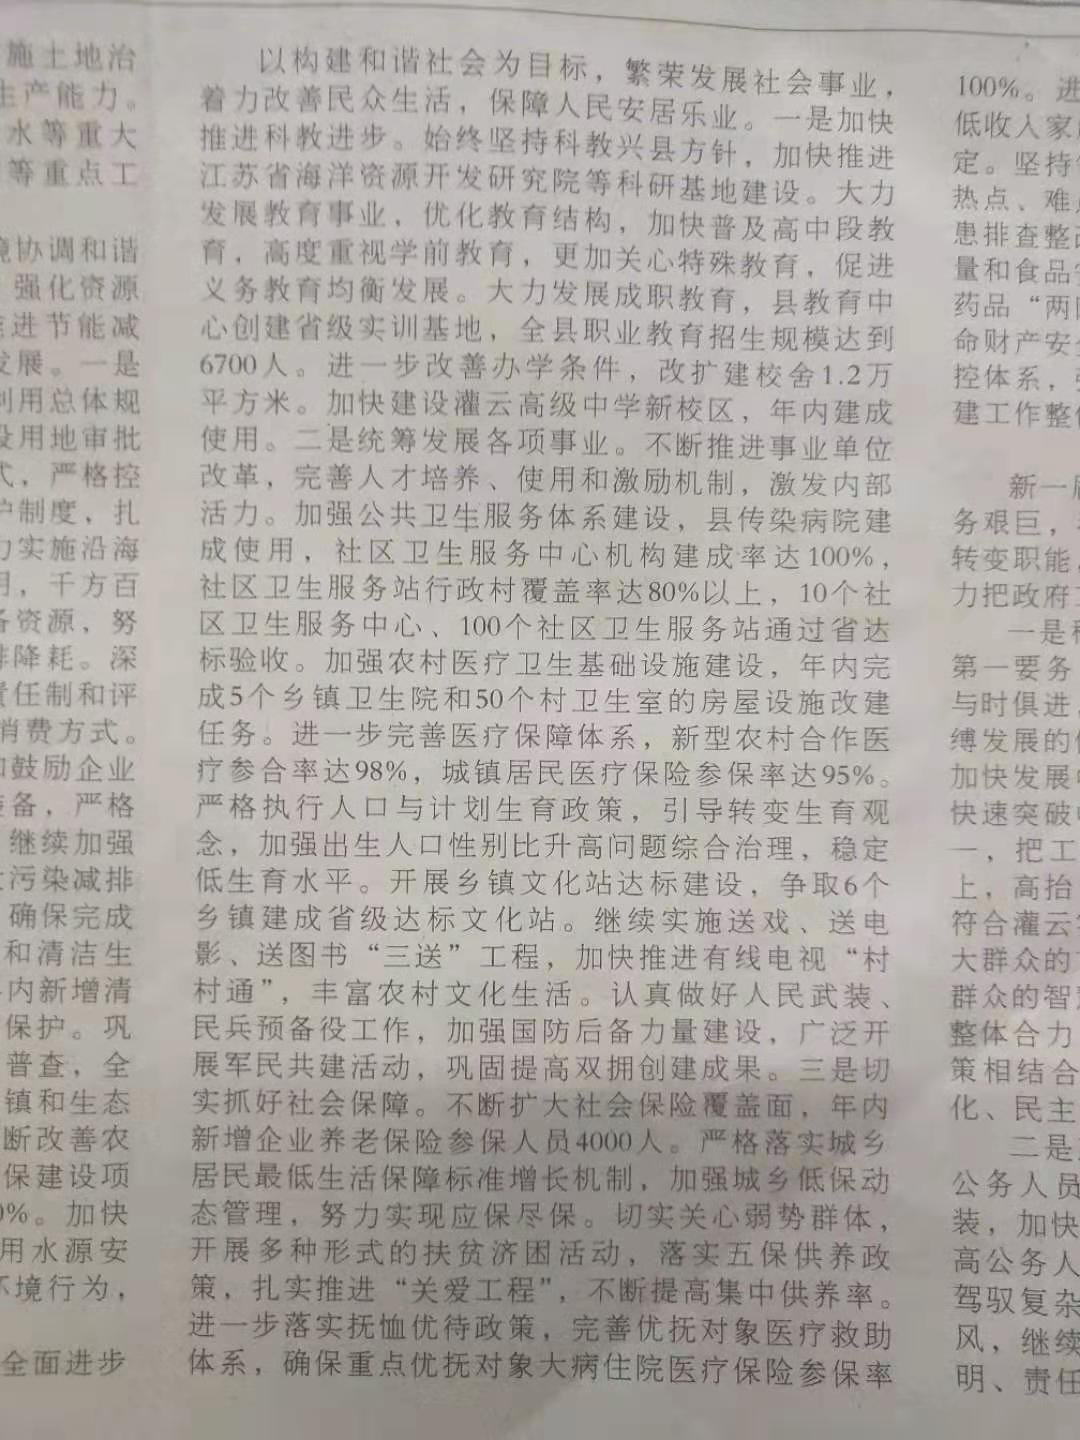 施土地治
生产能力。
水等重大
等重点工
境协调和谐
强化资源
进节能减
发展。一是
利用总体规
设用地审批
式，严格控
护制度，扎
力实施沿海
用，千方百
备资源，努
排降耗。深
责任制和评
消费方式。
和鼓励企业
装备，严格
继续加强
污染减排
确保完成
和清洁生
内新增清
保护。巩
普查，全
镇和生态
断改善农
保建设项
0%。加快
用水源安
环境行为，
全面进步
以构建和谐社会为目标，繁荣发展社会事业，
着力改善民众生活，保障人民安居乐业。一是加快
推进科教进步。始终坚持科教兴县方针，加快推进
江苏省海洋资源开发研究院等科研基地建设。大力
发展教育事业，优化教育结构，加快普及高中段教
育，高度重视学前教育，更加关心特殊教育，促进
义务教育均衡发展。大力发展成职教育，县教育中
心创建省级实训基地，全县职业教育招生规模达到
6700人。进一步改善办学条件，改扩建校舍1.2万
平方米。加快建设灌云高级中学新校区，年内建成
使用。二是统筹发展各项事业。不断推进事业单位
改革，完善人才培养、使用和激励机制，激发内部
活力。加强公共卫生服务体系建设，县传染病院建
成使用，社区卫生服务中心机构建成率达100%，
社区卫生服务站行政村覆盖率达80%以上，10个社
区卫生服务中心、100个社区卫生服务站通过省达
标验收。加强农村医疗卫生基础设施建设，年内完
成5个乡镇卫生院和50个村卫生室的房屋设施改建
任务。进一步完善医疗保障体系，新型农村合作医
疗参合率达98%，城镇居民医疗保险参保率达95%。
严格执行人口与计划生育政策，引导转变生育观
念，加强出生人口性别比升高问题综合治理，稳定
低生育水平。开展乡镇文化站达标建设，争取6个
乡镇建成省级达标文化站。继续实施送戏、送电
影、送图书“三送”工程，加快推进有线电视“村
村通”，丰富农村文化生活。认真做好人民武装、
民兵预备役工作，加强国防后备力量建设，广泛开
展军民共建活动，巩固提高双拥创建成果。三是切
实抓好社会保障。不断扩大社会保险覆盖面，年内
新增企业养老保险参保人员4000人。严格落实城乡
居民最低生活保障标准增长机制，加强城乡低保动
态管理，努力实现应保尽保。切实关心弱势群体，
开展多种形式的扶贫济困活动，落实五保供养政
策，扎实推进“关爱工程”，不断提高集中供养率。
进一步落实抚恤优待政策，完善优抚对象医疗救助
体系，确保重点优抚对象大病住院医疗保险参保率
100%。进
低收入家
定。坚持
热点、难
患排查整
量和食品
药品“两
命财产安
控体系，
建工作整
新一
务艰巨，
转变职能
力把政府
一是
第一要务
与时俱进
缚发展的
加快发展
快速突破
一，把工
上，高抬
符合灌云
大群众的
群众的智
整体合力
策相结合
化、民主
二是
公务人员
装，加快
高公务人
驾驭复杂
风，继续
明、责任